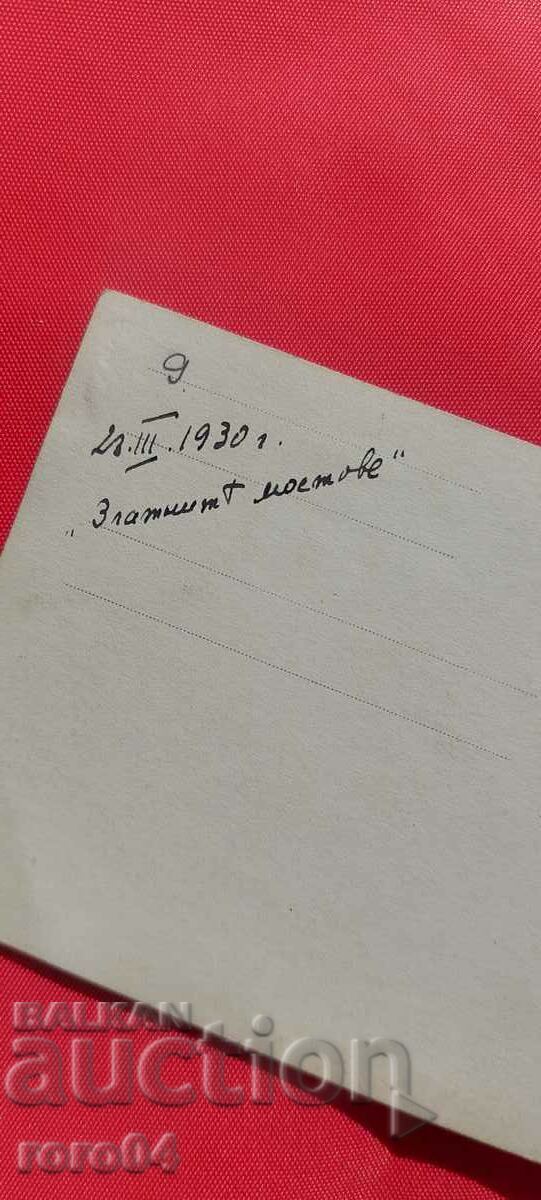 9.
III.1930 г.
„Златнитѣ мостове“
BALKAN
auction
roro04